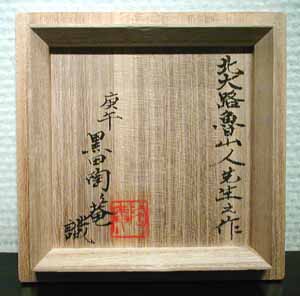 北大路魯山人先生之作
庚午
黒田陶々菴
識